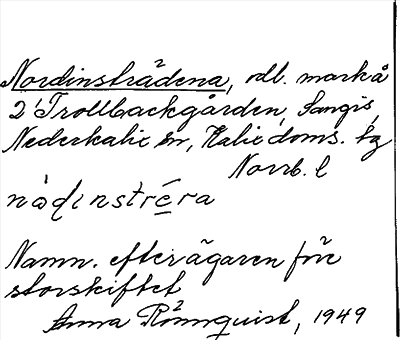 Nordinsträdena, odl. mark å
2 Trollbackgården, Sangis,
Nederkalix sn, Kalix doms. tg
Norrb. l
nȯḍinstréra
Namn. efter ägaren före
storskiftet
Anna Rönnquist, 1949